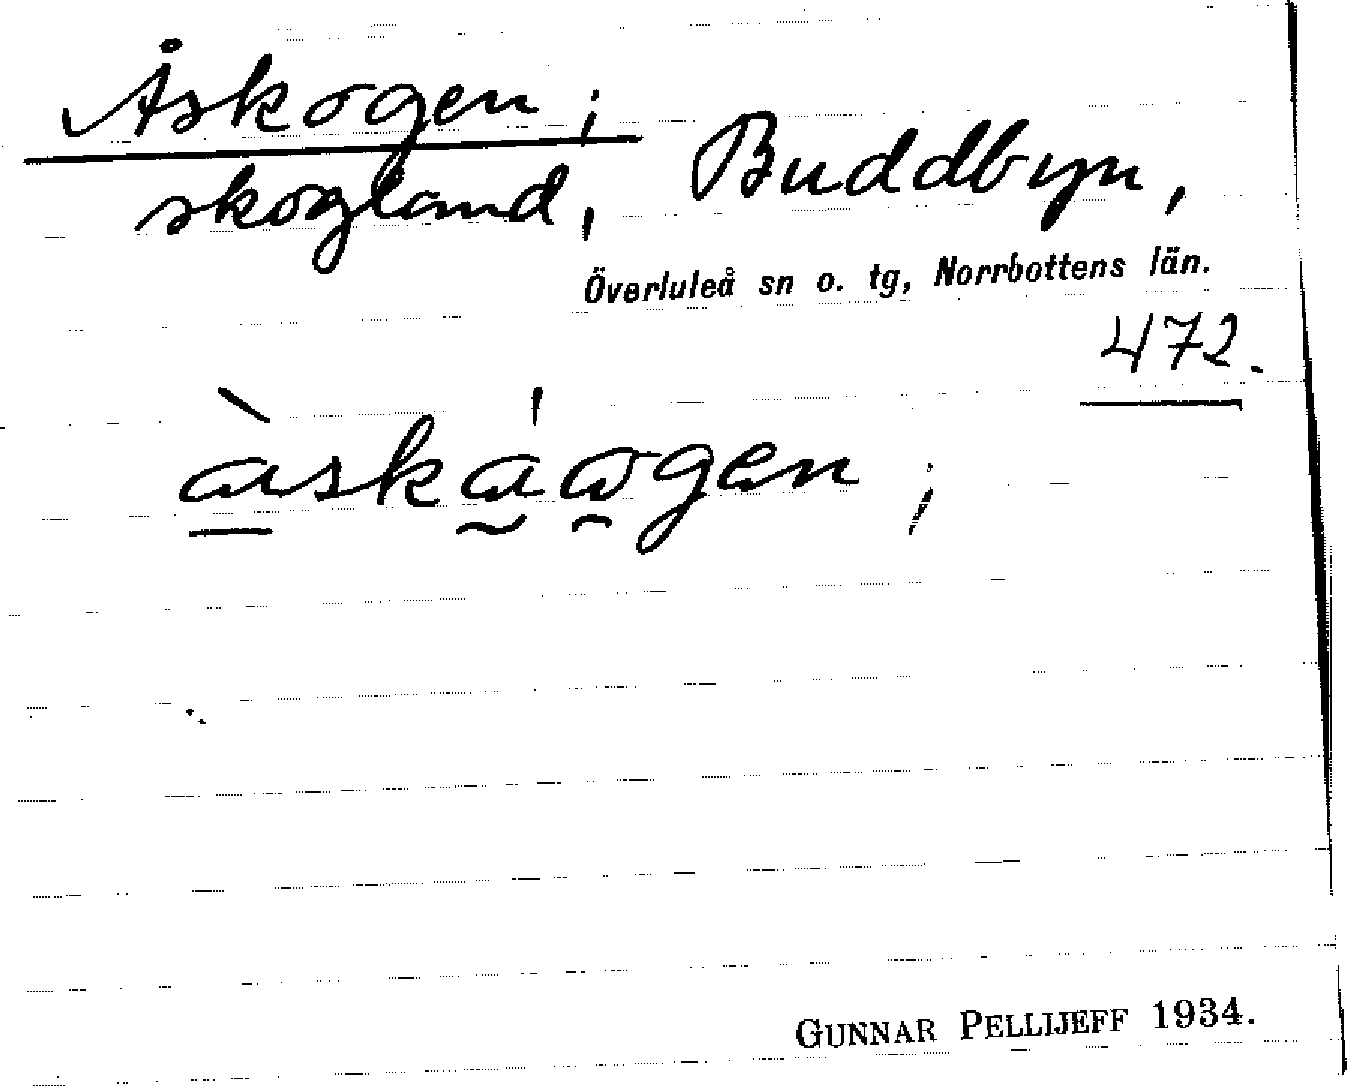 Åskogen;
skogland, Buddbyn,
Överluleå sn o. tg, Norrbottens län.
472.
àskáogen;
GUNNAR PELLIJEFF 1934.